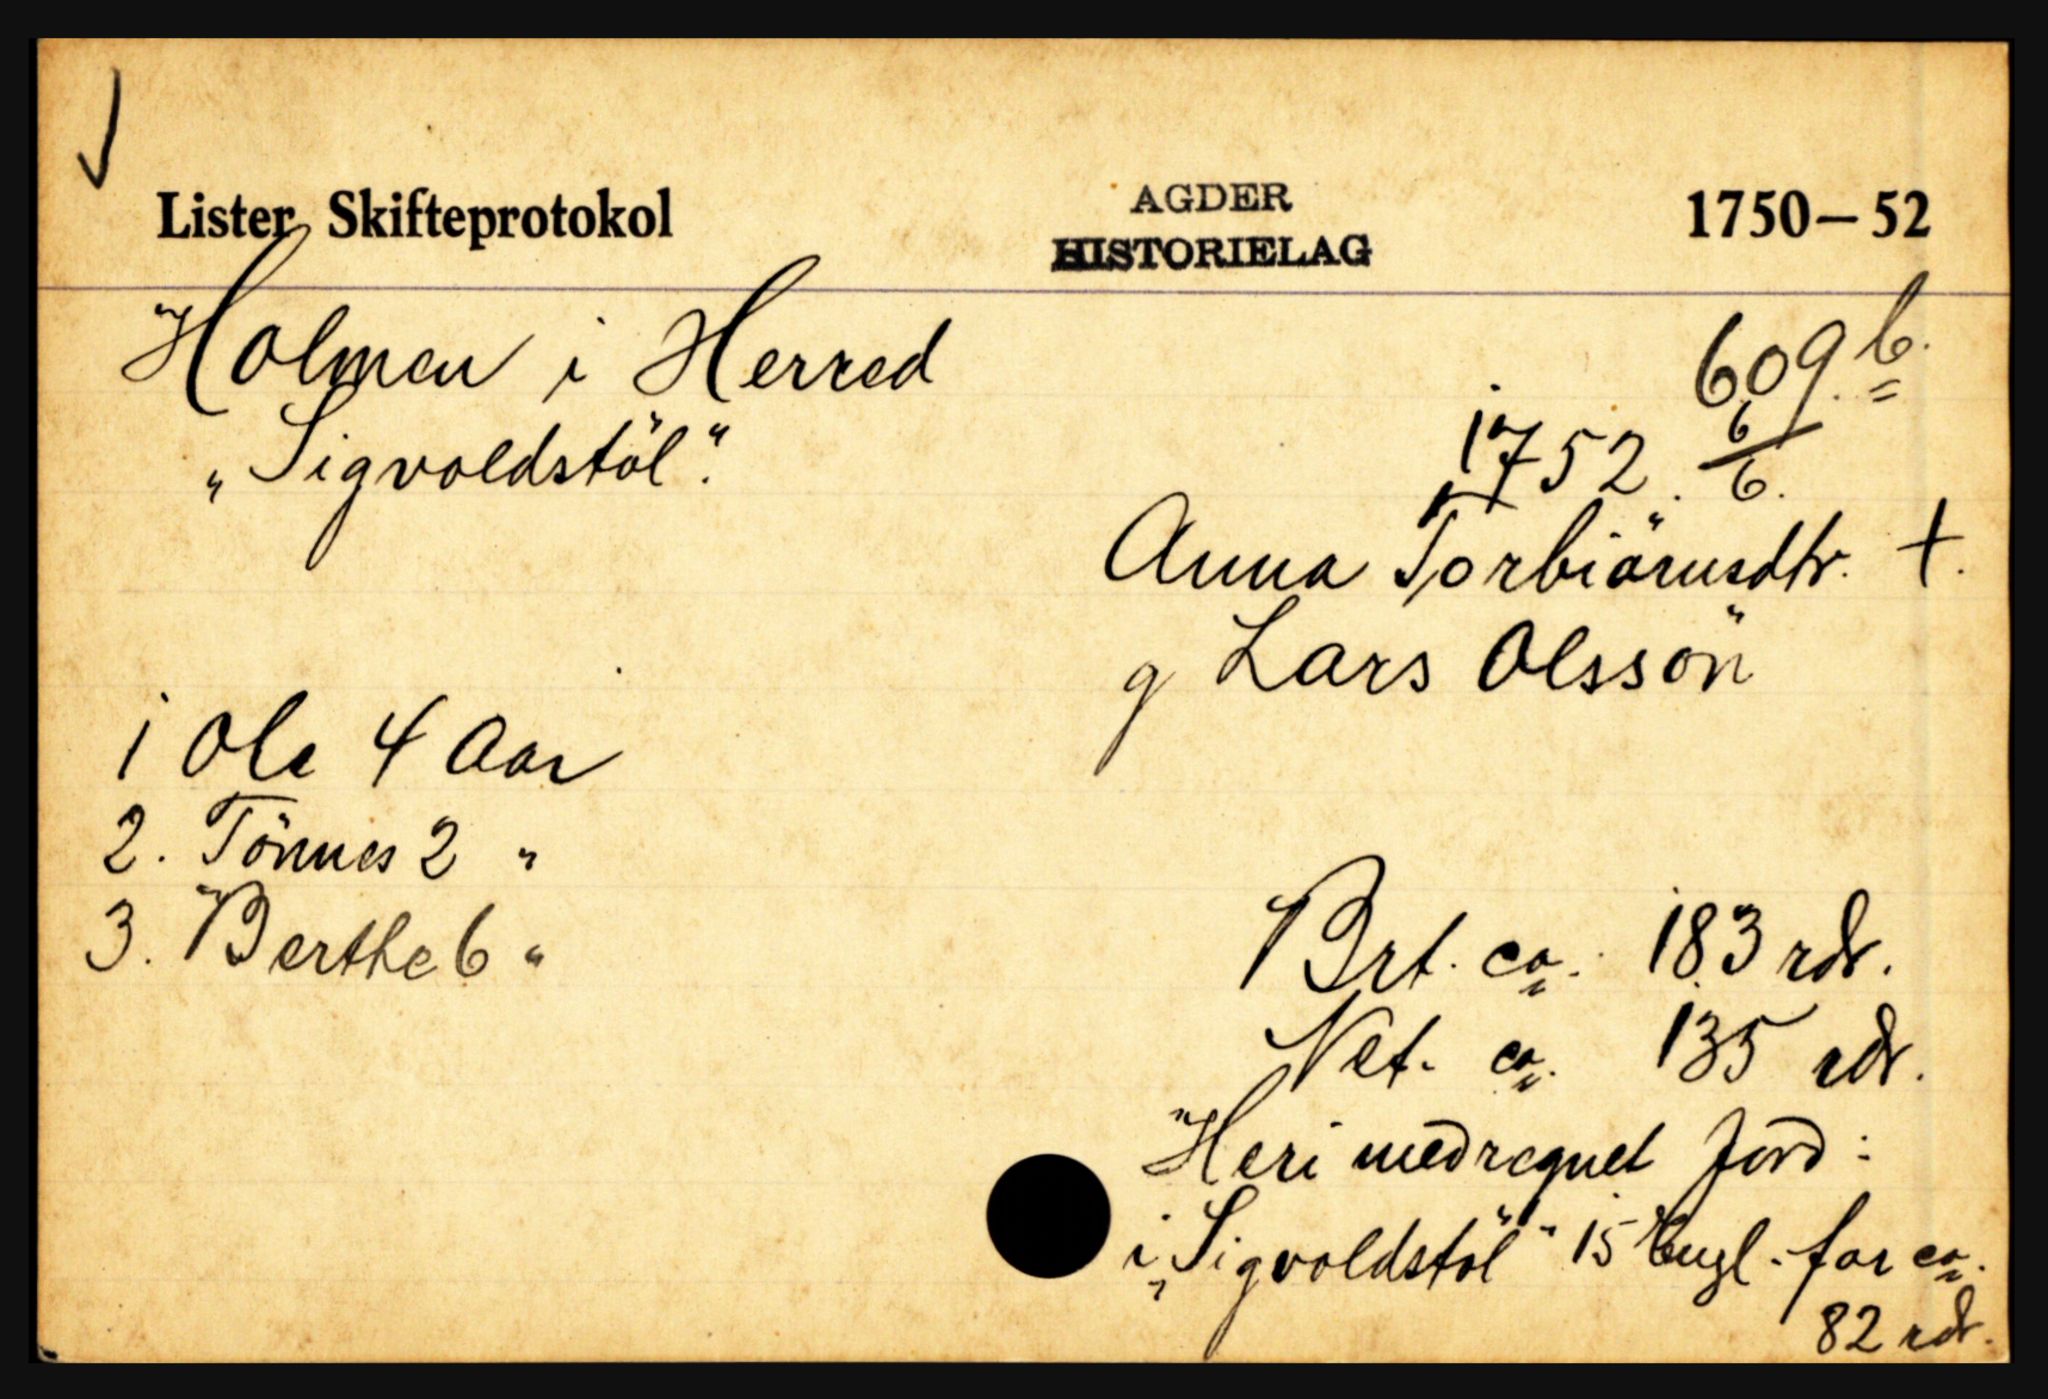 Lister Skifteprotokol AGDER HISTORIELAG 1750–52
Holmen i Herred 609 b.
„Sigvoldstöl“. 1752. 6/6.
Anna Torbiörnsdtr. †.
g Lars Olssön
1 Ole 4 Aar
2. Tönnes 2 "
3. Berthe 6 "
Brt. ca. 183 rdr.
Net. ca. 135 rdr.
Heri medregnet Jord:
i „Sigvoldstöl“ 15 Engl. for ca.
82 rdr.